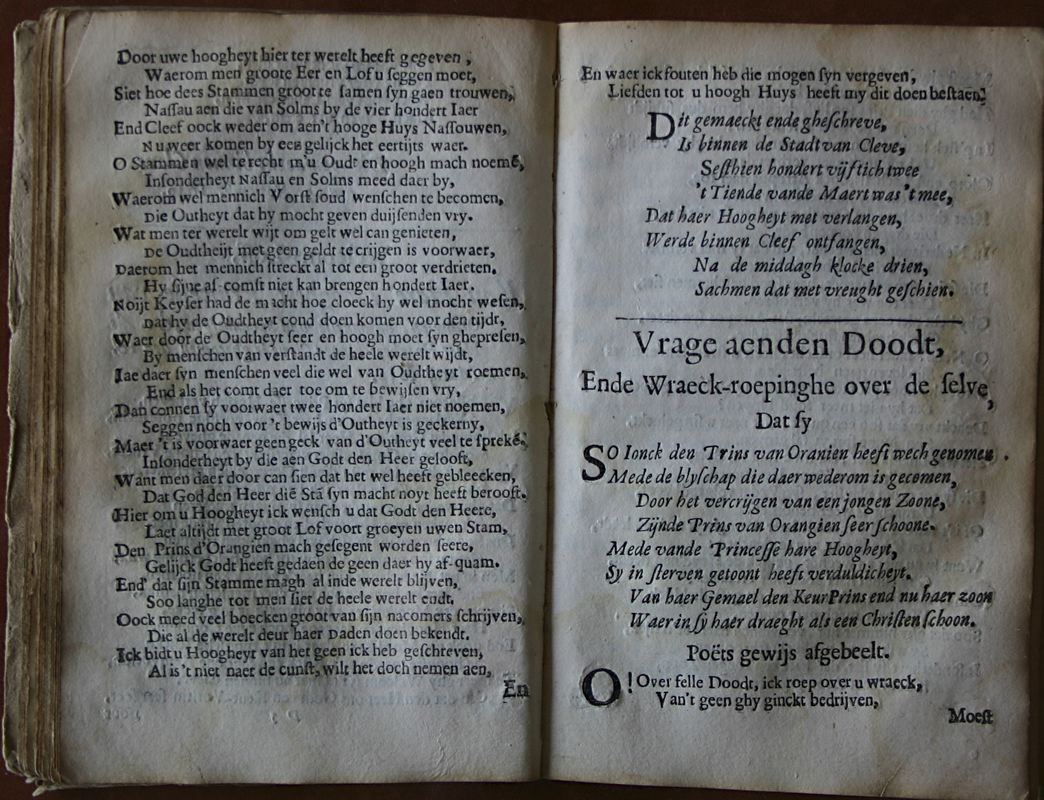 Door uwe hoogheyt hier ter werelt heeft gegeven,
Waerom men groote Eer en Lof u seggen moet,
Siet hoe dees Stammen groot te samen syn gaen trouwen,
Nassau aen die van Solms by de vier hondert Iaer
End Cleef oock weder om aen't hooge Huys Nassouwen,
Nu weer komen by een gelijck het eertijts waer.
O Stammen wel te recht m'u Oudt en hoogh mach noemē,
Insonderheyt Nassau en Solms meed daer by,
Waerom wel mennich Vorst soud wenschen te becomen,
Die Outheyt dat hy mocht geven duijsenden vry.
Wat men ter werelt wijt om gelt wel can genieten,
De Oudtheijt met geen geldt te crijgen is voorwaer,
Daerom het mennich streckt al tot een groot verdrieten.
Hy sijne af-comst niet kan brengen hondert Iaer.
Noijt Keyser had de macht hoe cloeck hy wel mocht wesen,
Dat hy de Oudtheyt cond doen komen voor den tijdt,
Waer door de Oudtheyt seer en hoogh moet syn ghepresen,
By menschen van verstandt de heele werelt wijdt,
Iae daer syn menschen veel die wel van Oudtheyt roemen,
End als het comt daer toe om te bewijsen vry,
Dan connen sy voorwaer twee hondert Iaer niet noemen,
Seggen noch voor 't bewijs d'Outheyt is geckerny,
Maer 't is voorwaer geen geck van d'Outheyt veel te sprekē.
Insonderheyt by die aen Godt den Heer gelooft,
Want men daer door can sien dat het wel heeft gebleecken,
Dat God den Heer diē Stā syn macht noyt heeft berooft.
Hier om u Hoogheyt ick wensch u dat Godt den Heere,
Laet altijdt met groot Lof voort groeyen uwen Stam,
Den Prins d'Orangien mach gesegent worden seere,
Gelijck Godt heeft gedaen de geen daer hy af-quam.
End' dat sijn Stamme magh al inde werelt blijven,
Soo langhe tot men siet de heele werelt endt,
Oock meed veel boecken groot van sijn nacomers schrijven,
Die al de werelt deur haer Daden doen bekendt.
Ick bidt u Hoogheyt van het geen ick heb geschreven,
Al is 't niet naer de cunst, wilt het doch nemen aen,
En
En waer ick fouten heb die mogen syn vergeven,
Liefden tot u hoogh Huys heeft my dit doen bestaen.
Dit gemaeckt ende gheschreve,
Is binnen de Stadt van Cleve,
Sesthien hondert vijftich twee
't Tiende vande Maert was 't mee,
Dat haer Hoogheyt met verlangen,
Werde binnen Cleef ontfangen,
Na de middagh klocke drien,
Sachmen dat met vreught geschien.
Vrage aenden Doodt,
Ende Wraeck-roepinghe over de selve,
Dat sy
SO Ionck den Prins van Oranien heeft wech genomen.
Mede de blyschap die daer wederom is gecomen,
Door het vercrijgen van een jongen Zoone,
Zijnde Prins van Orangien seer schoone.
Mede vande Princesse hare Hoogheyt,
Sy in sterven getoont heeft verduldicheyt.
Van haer Gemael den KeurPrins end nu haer zoon
Waer in sy haer draeght als een Christen schoon.
Poëts gewijs afgebeelt.
O! Over felle Doodt, ick roep over u wraeck,
Van't geen ghy ginckt bedrijven,
Moest